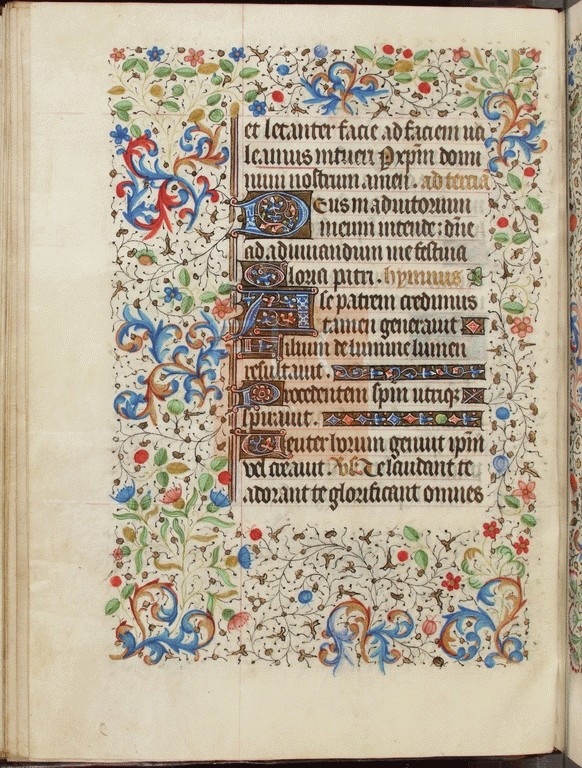 et letanter facie ad faciem ua
leamus intueri Pxpm domi
num nostrum amen. ad tercia
Deus in adiutorium
meum intende: dne
ad adiuuandum me festina
Gloria patri. hymnus
A se patrem credimus
tamen generauit
Filium de lumine lumen
resultauit.
Procedentem spm utriqz
spirauit.
Neuter horum genuit ipm
vel creauit Vs Te laudant te
adorant te glorificant omnes